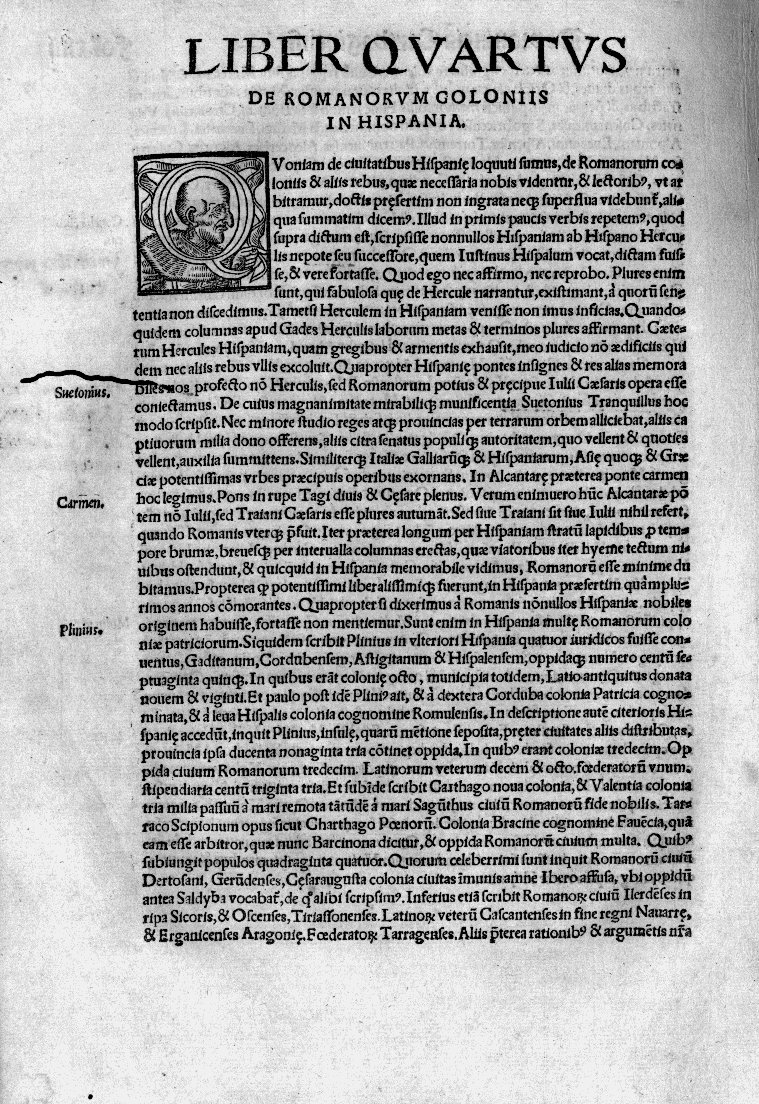 LIBER QVARTVS
DE ROMANORVM COLONIIS
IN HISPANIA.
QVoniam de ciuitatibus Hispanię loquuti sumus, de Romanorum co⸗
loniis & aliis rebus, quæ necessaria nobis videntur, & lectoribꝰ, vt ar
bitramur, doctis pręsertim non ingrata neqꝫ superflua videbunt᷑, ali⸗
qua summatim dicemꝰ. Illud in primis paucis verbis repetemꝰ, quod
supra dictum est, scripsisse nonnullos Hispaniam ab Hispano Hercu⸗
lis nepote seu successore, quem Iustinus Hispalum vocat, dictam fuis⸗
se, & vere fortasse. Quod ego nec affirmo, nec reprobo. Plures enim
sunt, qui fabulosa quę de Hercule narrantur, existimant, à quorũ sen⸗
tentia non discedimus. Tametsi Herculem in Hispaniam venisse non imus inficias. Quando⸗
quidem columnas apud Gades Herculis laborum metas & terminos plures affirmant. Cæte⸗
rum Hercules Hispaniam, quam gregibus & armentis exhausit, meo iudicio nõ ædificiis qui
dem nec aliis rebus vllis excoluit. Quapropter Hispanię pontes insignes & res alias memora
biles nos profecto nõ Herculis, sed Romanorum potius & pręcipue Iulii Cæsaris opera esse
Suetonius.
coniectamus. De cuius magnanimitate mirabiliqꝫ munificentia Suetonius Tranquillus hoc
modo scripsit. Nec minore studio reges atqꝫ prouincias per terrarum orbem alliciebat, aliis ca
ptiuorum milia dono offerens, aliis citra senatus populiqꝫ autoritatem, quo vellent & quoties
vellent, auxilia summittens. Similiterqꝫ Italiæ Galliarũqꝫ & Hispaniarum, Asię quoqꝫ & Græ
ciæ potentissimas vrbes præcipuis operibus exornans. In Alcantarę præterea ponte carmen
Carmen.
hoc legimus. Pons in rupe Tagi diuis & Cęsare plenus. Verum enimuero hũc Alcantaræ põ
tem nõ Iulii, sed Traiani Cæsaris esse plures autumãt. Sed siue Traiani sit siue Iulii nihil refert,
quando Romanis vterqꝫ p̃fuit. Iter præterea longum per Hispaniam stratũ lapidibus ꝓ tem⸗
pore brumæ, breuesqꝫ per interualla columnas erectas, quæ viatoribus iter hyeme tectum ni⸗
uibus ostendunt, & quicquid in Hispania memorabile vidimus, Romanorũ esse minime du
bitamus. Propterea ꝙ potentissimi liberalissimiqꝫ fuerunt, in Hispania præsertim quàm plu⸗
rimos annos cõmorantes. Quapropter si dixerimus à Romanis nõnullos Hispaniæ nobiles
originem habuisse, fortasse non mentiemur. Sunt enim in Hispania multę Romanorum colo
Plinius.
niæ patriciorum. Siquidem scribit Plinius in vlteriori Hispania quatuor iuridicos fuisse con⸗
uentus, Gaditanum, Cordubensem, Astigitanum & Hispalensem, oppidaqꝫ numero centũ se⸗
ptuaginta quinqꝫ. In quibus erãt colonię octo, municipia totidem, Latio antiquitus donata
nouem & viginti. Et paulo post idẽ Pliniꝰ ait, & à dextera Corduba colonia Patricia cogno⸗
minata, & à leua Hispalis colonia cognomine Romulensis. In descriptione autẽ citerioris Hi⸗
spanię accedũt, inquit Plinius, insulę, quarũ mẽtione seposita, pręter ciuitates aliis distributas,
prouincia ipsa ducenta nonaginta tria cõtinet oppida, In quibꝰ erant coloniæ tredecim. Op
pida ciuium Romanorum tredecim. Latinorum veterum decem & octo, fœderatorũ vnum,
stipendiaria centũ triginta tria. Et subĩde scribit Carthago noua colonia, & Valentia colonia
tria milia passuũ à mari remota tãtũdẽ à mari Sagũthus ciuiũ Romanorũ fide nobilis. Tar⸗
raco Scipionum opus sicut Charthago Pœnorũ. Colonia Bracine cognomine Fauẽcia, quã
eam esse arbitror, quæ nunc Barcinona dicitur, & oppida Romanorũ ciuium multa. Quibꝰ
subiungit populos quadraginta quatuor. Quorum celeberrimi sunt inquit Romanorũ ciuiũ
Dertosani, Gerũdenses, Cęsaraugusta colonia ciuitas ĩmunis amne Ibero affusa, vbi oppidũ
antea Saldyba vocabat᷑, de qͦ alibi scripsimꝰ. Inferius etiã scribit Romanoꝝ ciuiũ Ilerdẽses in
ripa Sicoris, & Oscenses, Tiriassonenses. Latinoꝝ veterũ Cascantenses in fine regni Nauarrę,
& Erganicenses Aragonię. Fœderatoꝝ Tarragenses. Aliis p̃terea rationibꝰ & argumẽtis nr̃a